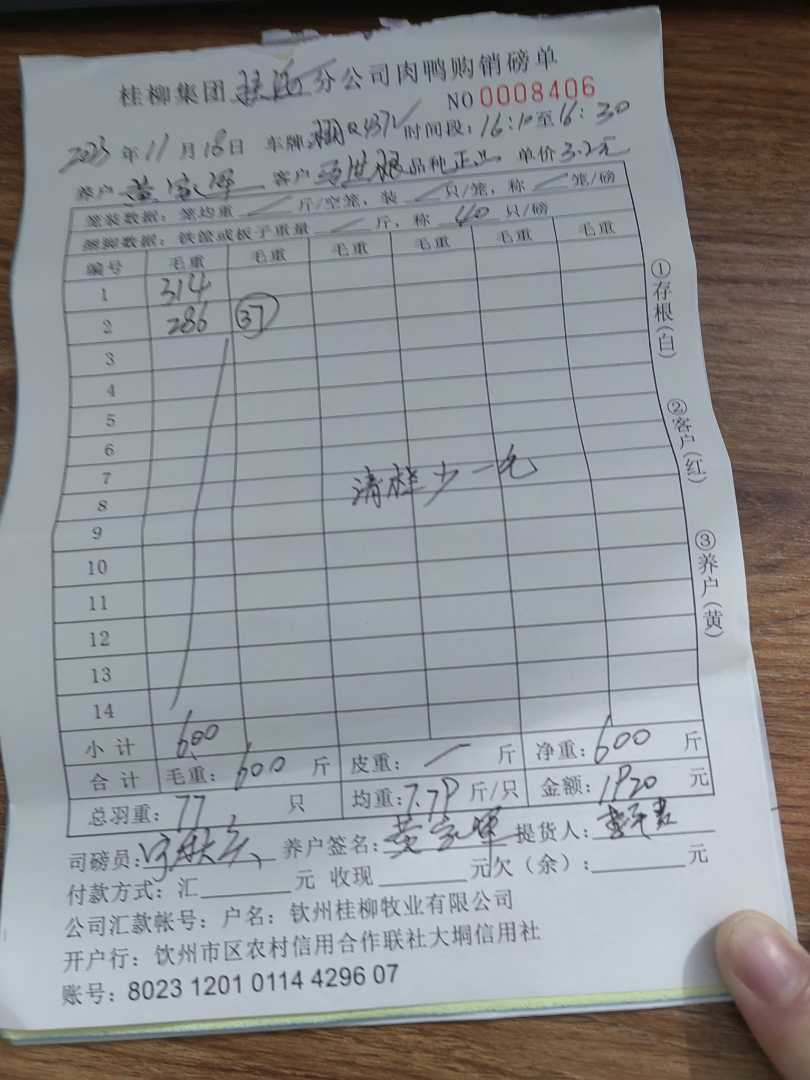 桂柳集团 分公司肉鸭购销磅单
NO 0008406
2023年11月18日 车牌 时间段：16:10至16:30
养户 黄家军 客户 品种 正业 单价3.2元
笼装数据：笼均重 斤/空笼，装 只/笼，称 笼/磅
捆脚数据：铁篮或板子重量 斤，称 40 只/磅
编号 毛重 毛重 毛重 毛重 毛重 毛重
1 314
2 286 37
3
4
5
6
7 清样少一毛
8
9
10
11
12
13
14
小计 600
合计 毛重：600斤 皮重： 斤 净重：600斤
总羽重：77 只 均重：7.79斤/只 金额：1920元
司磅员： 养户签名：黄家军 提货人：
付款方式：汇 元 收现 元欠（余）： 元
公司汇款帐号：户名：钦州桂柳牧业有限公司
开户行：钦州市区农村信用合作联社大垌信用社
账号：8023 1201 0114 4296 07
①存根（白）
②客户（红）
③养户（黄）